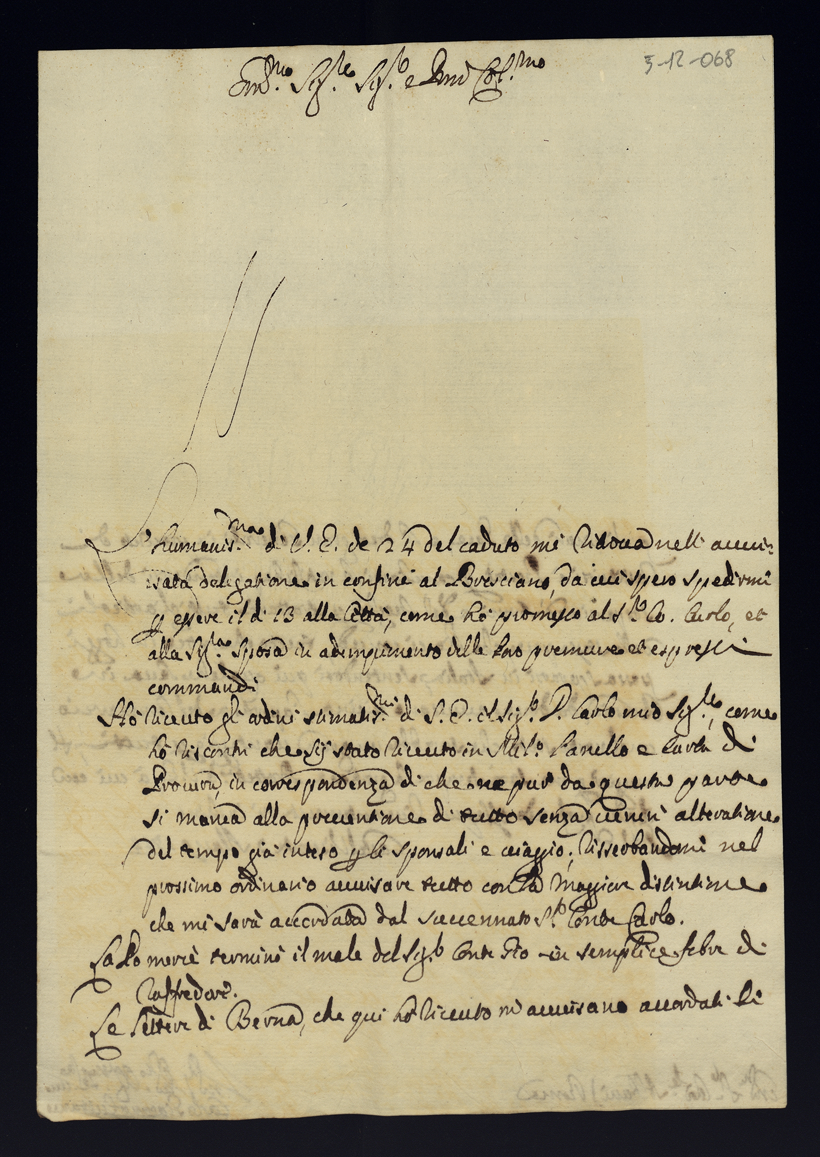 5-12-068
Ind.mo Sig.re Sig.r e Pnd Col.mo
L'humanis.ma di V. E. de 24 del caduto mi ritrova nell' accen-
nata delegatione in confine al Bresciano, da cui spero spedirmi
p essere il di 13 alla Città, come hò promesso al S.r Co. Carlo, et
alla Sig.ra Sposa in adempimento delle loro premure et espressi
commandi
Hò riceuto gli ordini stimatis.mi di V. E. il Sig.r D. Carlo mio Sig.re, come
hò riscontri che sij stato riceuto in Mil.o l'anello e carta di
Procura, in corrispondenza di che ne pur da questa parte
si manca alla preuentione di tutto senza uenire alteratione
del tempo già inteso p li sponsali e uiaggio, risserbandomi nel
prossimo ordinario auuisare tutto con la maggior distintione
che mi sarà accordata dal succennato S.r Conte Carlo.
La Dio mercè terminò il male del Sig.r Conte in semplice febre di
raffredore.
Le lettere di Berna, che qui hò riceuto m'auuisano accordati li